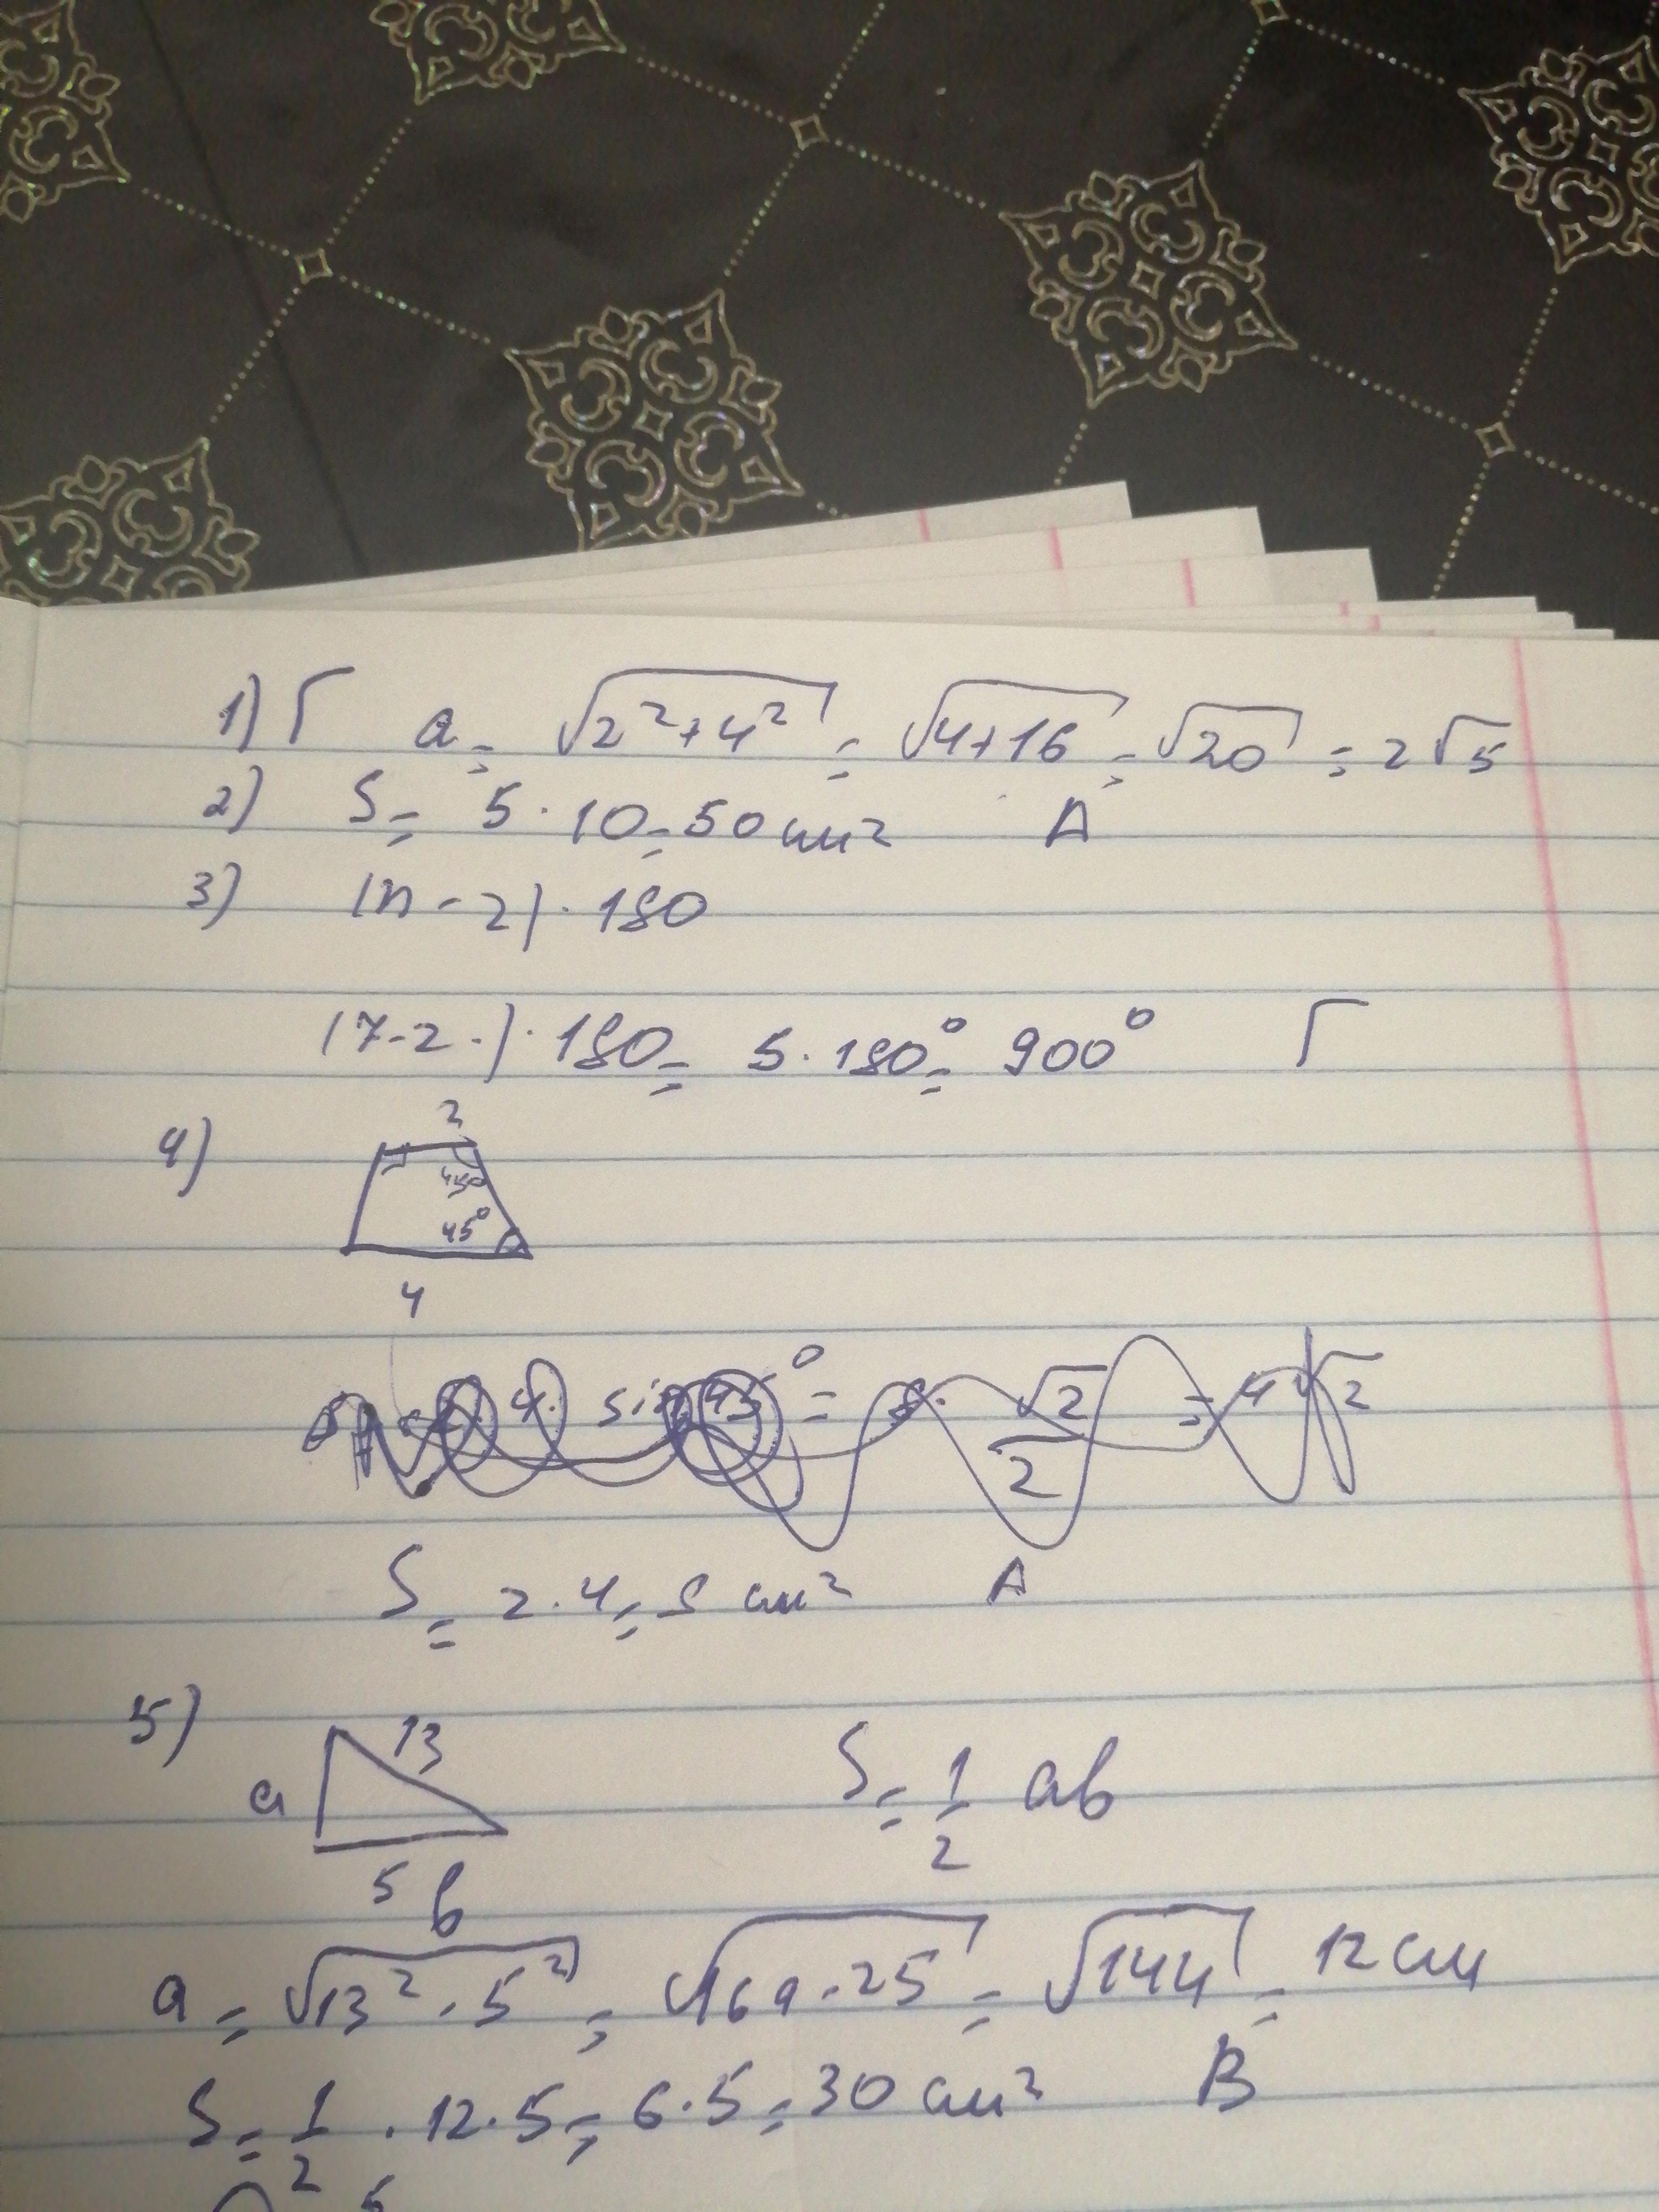 1) Г a = √2²+4² = √4+16 = √20 = 2√5
2) S = 5·10=50 см² А
3) (n-2)·180
(7-2·)·180= 5·180°= 900° Г
4)
2
45°
45°
4
sin 45° = 8·√2/2 = 4√2
S = 2·4=8 см² А
5)
13
a
5 b
S = 1/2 ab
a = √13²-5² = √169-25 = √144 = 12 см
S = 1/2 · 12·5= 6·5=30 см² В